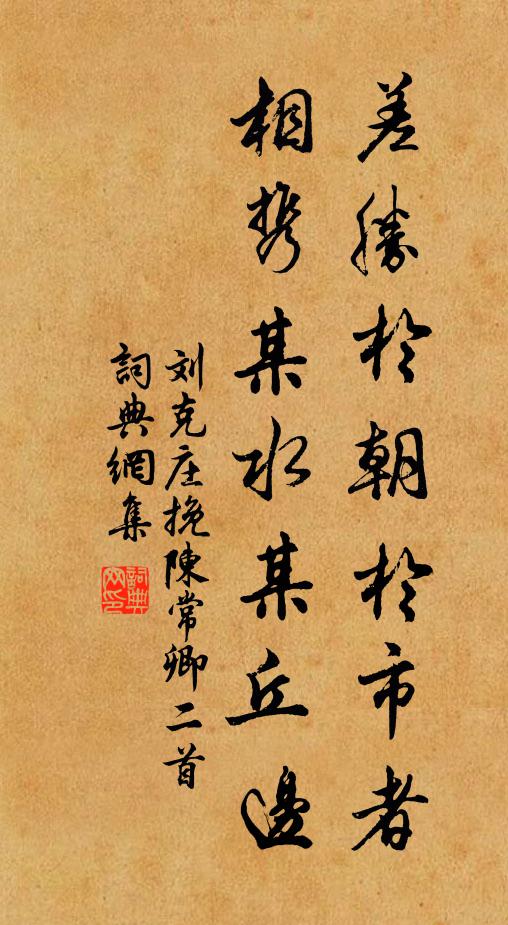 差勝於朝於市者
相携某水某丘邊
刘克庄挽陳常卿二首
詞典網集
詞典网印